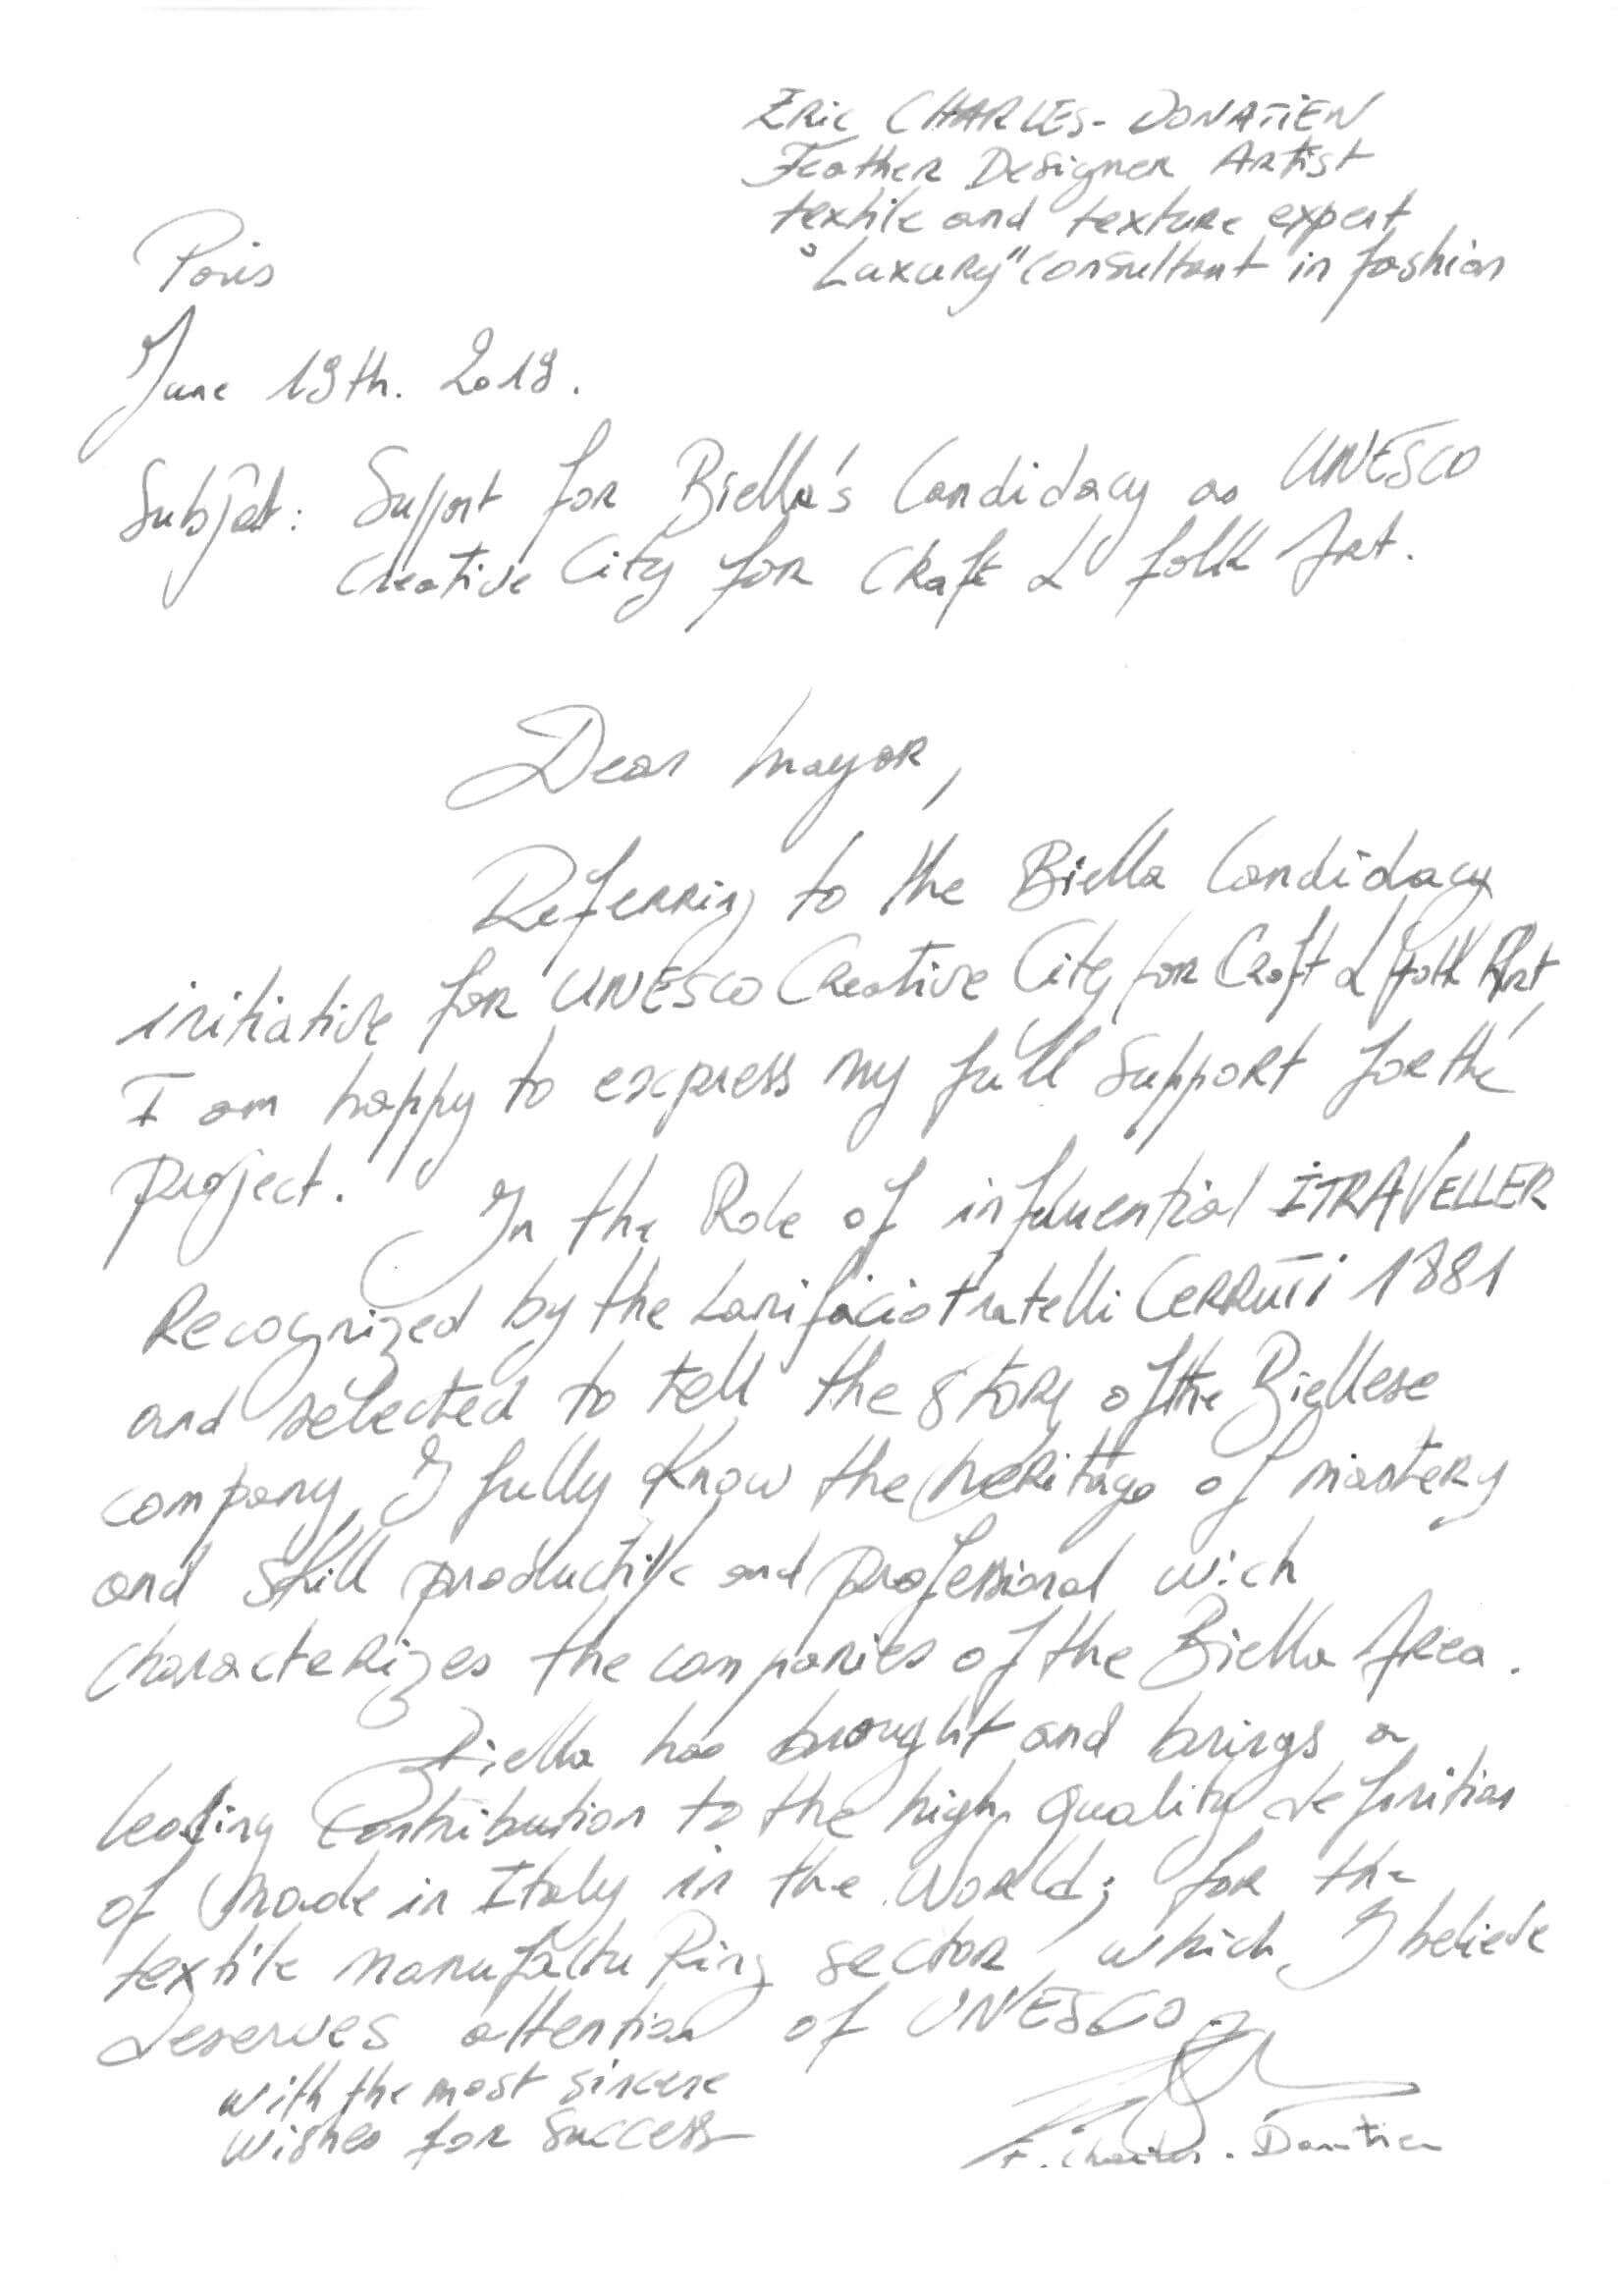 Eric CHARLES-DONATIEN
Feather Designer Artist
textile and texture expert
"Luxury" consultant in fashion
Paris
June 19th. 2019.
Subject: Support for Biella's Candidacy as UNESCO
Creative City for Craft & folk Art.
Dear Mayor,
Referring to the Biella Candidacy
initiative for UNESCO Creative City for Craft & folk Art,
I am happy to express my full support for the
project.
In the Role of influential ITRAVELLER
Recognized by the Lanificio Fratelli CERRUTI 1881
and selected to tell the story of the Biellese
company, I fully know the heritage of mastery
and skill productive and professional wich
characterizes the companies of the Biella Area.
Biella has brought and brings a
leading contribution to the high quality definition
of Made in Italy in the World; for the
textile manufacturing sector which, I believe
deserves attention of UNESCO.
with the most sincere
wishes for success
E. Charles-Donatien